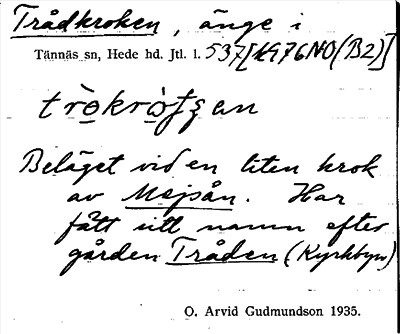 Trådkroken, änge i
Tännäs sn, Hede hd. Jtl. l. 537 [1976NO(B2)]
Beläget vid en liten krok
av Mejsån. Har
fått sitt namn efter
gården Tråden (Kyrkbyn)
O. Arvid Gudmundson 1935.